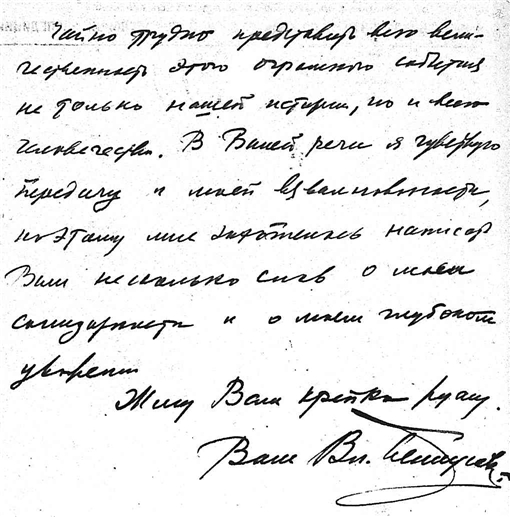 трудно представить всю вели-
чественность этого огромного события
не только нашей истории, но и всего
человечества. В Вашей речи я чувствую
передачу и моей взволнованности,
поэтому мне захотелось написать
Вам несколько слов о моей
солидарности и о моем глубоком
уважении
Жму Вам крепко руку.
Ваш Вл.